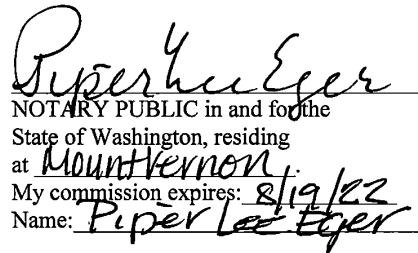 Piper Lee Eger
NOTARY PUBLIC in and for the
State of Washington, residing
at Mount Vernon.
My commission expires: 8/19/22
Name: Piper Lee Eger